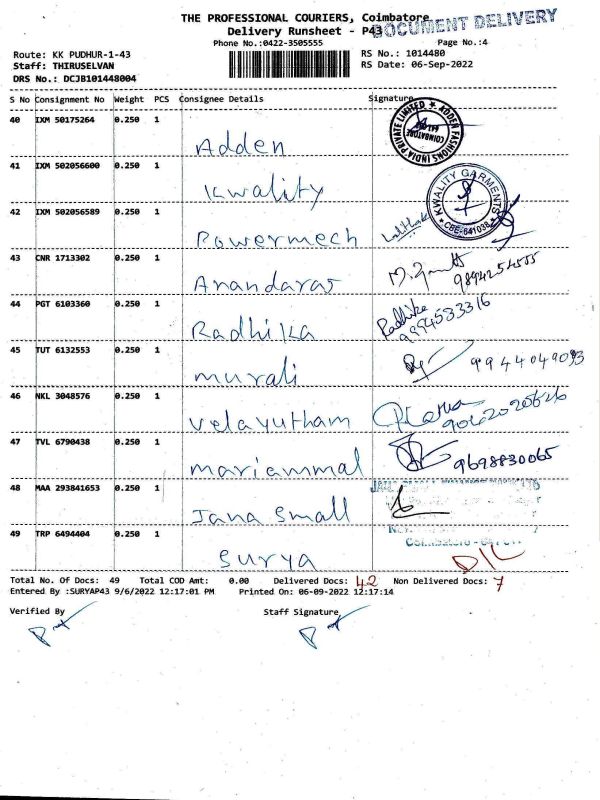 THE PROFESSIONAL COURIERS, Coimbatore
DOCUMENT DELIVERY
Delivery Runsheet - P43
Phone No.:0422-3505555 Page No.:4
Route: KK PUDHUR-1-43 RS No.: 1014480
Staff: THIRUSELVAN RS Date: 06-Sep-2022
DRS No.: DCJB101448004
S No Consignment No Weight PCS Consignee Details Signature
40 IXM 50175264 0.250 1
Adden
ADDEN FASHIONS INDIA PRIVATE LIMITED
COIMBATORE
41 IXM 502056600 0.250 1
Kwality
KWALITY GARMENTS
CBE-641038
42 IXM 502056589 0.250 1
Powermech
43 CNR 1713302 0.250 1
Anandaras 9894254555
44 PGT 6103360 0.250 1
Radhika Radhika
9994533316
45 TUT 6132553 0.250 1
murali 9944049093
46 NKL 3048576 0.250 1
velayutham 9042020626
47 TVL 6790438 0.250 1
mariammal 9698830065
48 MAA 293841653 0.250 1
Jana Small
49 TRP 6494404 0.250 1
Coimbatore
Surya D/L
Total No. Of Docs: 49 Total COD Amt: 0.00 Delivered Docs: 42 Non Delivered Docs: 7
Entered By :SURYAP43 9/6/2022 12:17:01 PM Printed On: 06-09-2022 12:17:14
Verified By Staff Signature